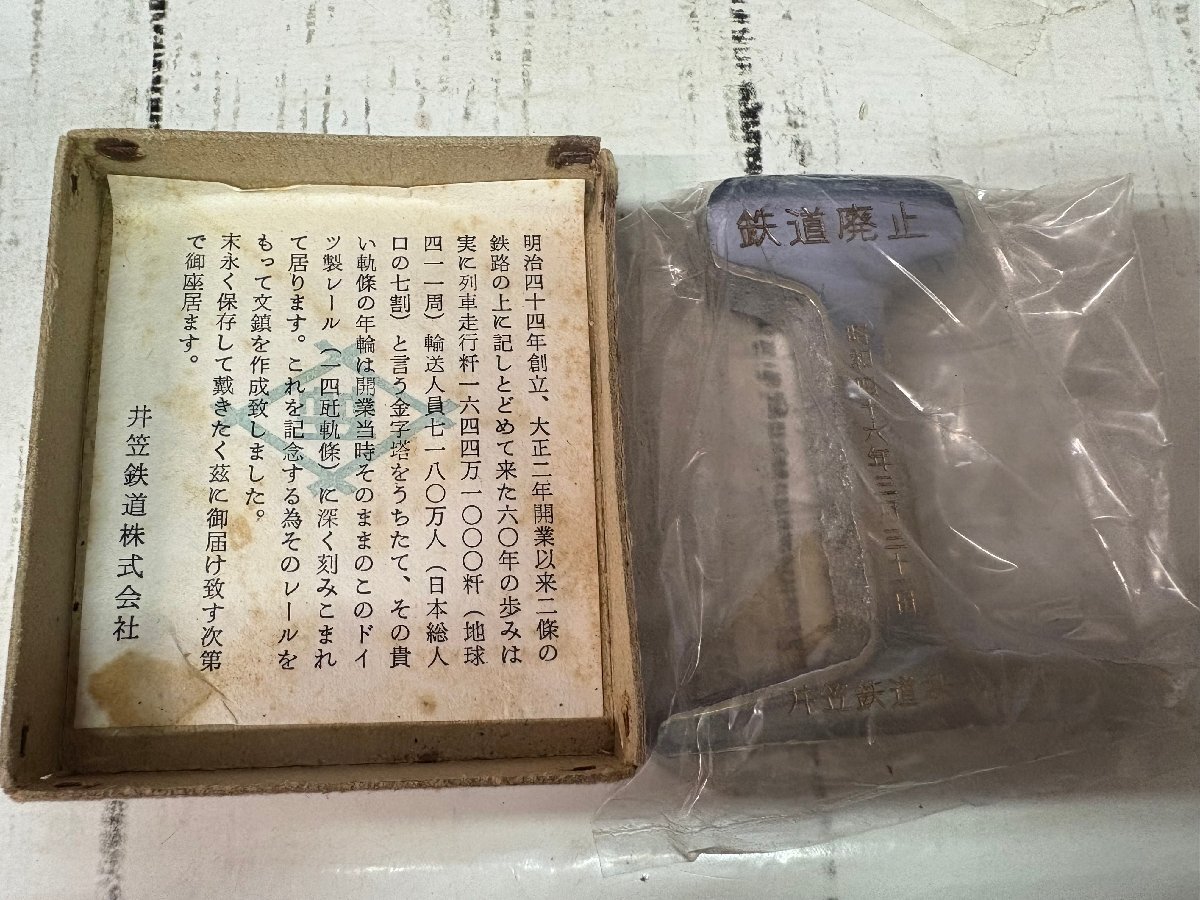 明治四十四年創立、大正二年開業以来二條の
鉄路の上に記しとどめて来た六〇年の歩みは
実に列車走行粁一六四四万一〇〇〇粁（地球
四一一周）輸送人員七一八〇万人（日本総人
口の七割）と言う金字塔をうちたて、その貴
い軌條の年輪は開業当時そのままのこのドイ
ツ製レール（一四瓩軌條）に深く刻みこまれ
て居ります。これを記念する為そのレールを
もって文鎮を作成致しました。
末永く保存して戴きたく茲に御届け致す次第
で御座居ます。
井笠鉄道株式会社
鉄道廃止
昭和四十六年三月三十一日
井笠鉄道